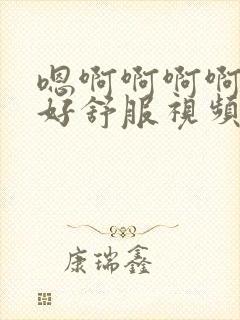 嗯啊啊啊啊
好舒服視頻
康瑞鑫